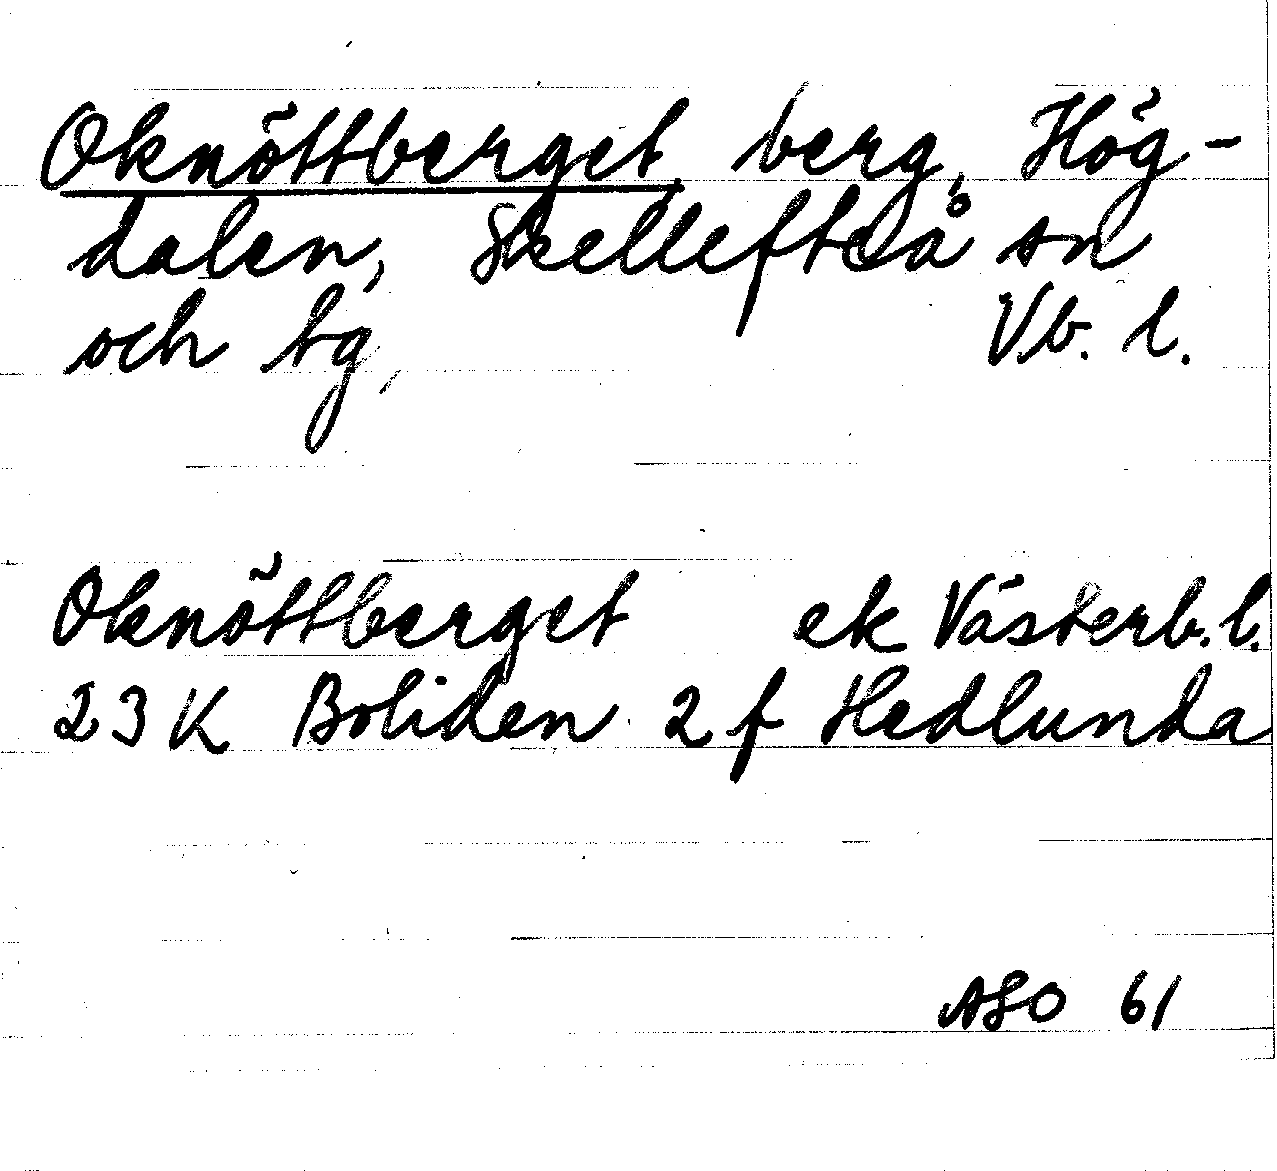 Oknöttberget, berg, Hög-
dalen, Skellefteå sn
och tg, Vb. l.
Oknöttberget ek Västerb. l.
23 K Boliden 2 f Hedlunda
ASO 61